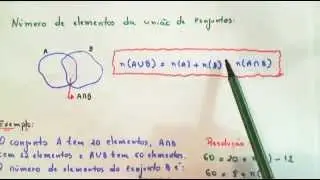 Número de elementos da união de conjuntos:
A B
n(A∪B) = n(A) + n(B) n(A∩B)
A∩B
Exemplo:
O conjunto A tem 20 elementos, A∩B
tem 12 elementos e A∪B tem 60 elementos.
O número de elementos do conjunto B é:
Resolução
60 = 20 + n( ) - 12
60 = 8 + n(